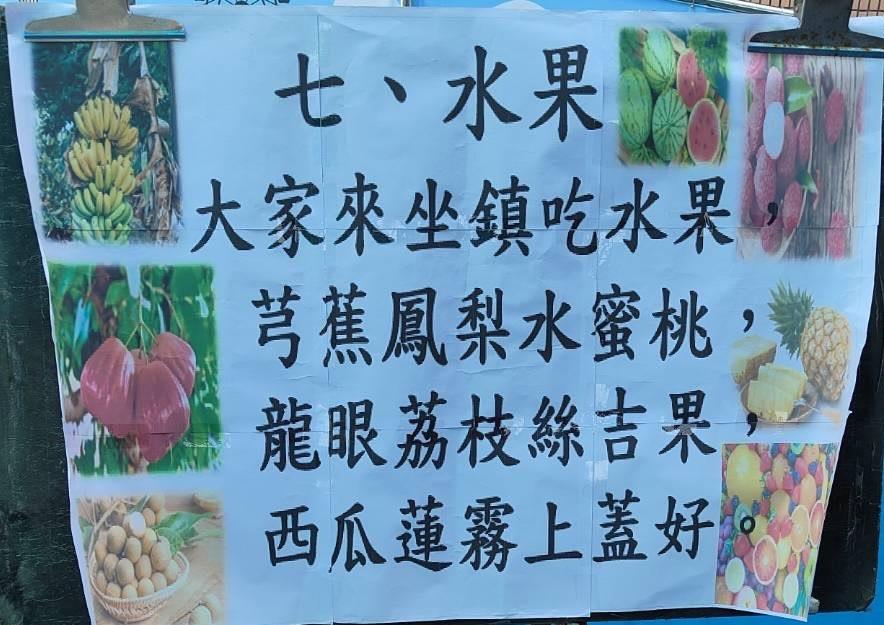 七、水果
大家來坐鎮吃水果，
芎蕉鳳梨水蜜桃，
龍眼荔枝絲吉果，
西瓜蓮霧上蓋好。